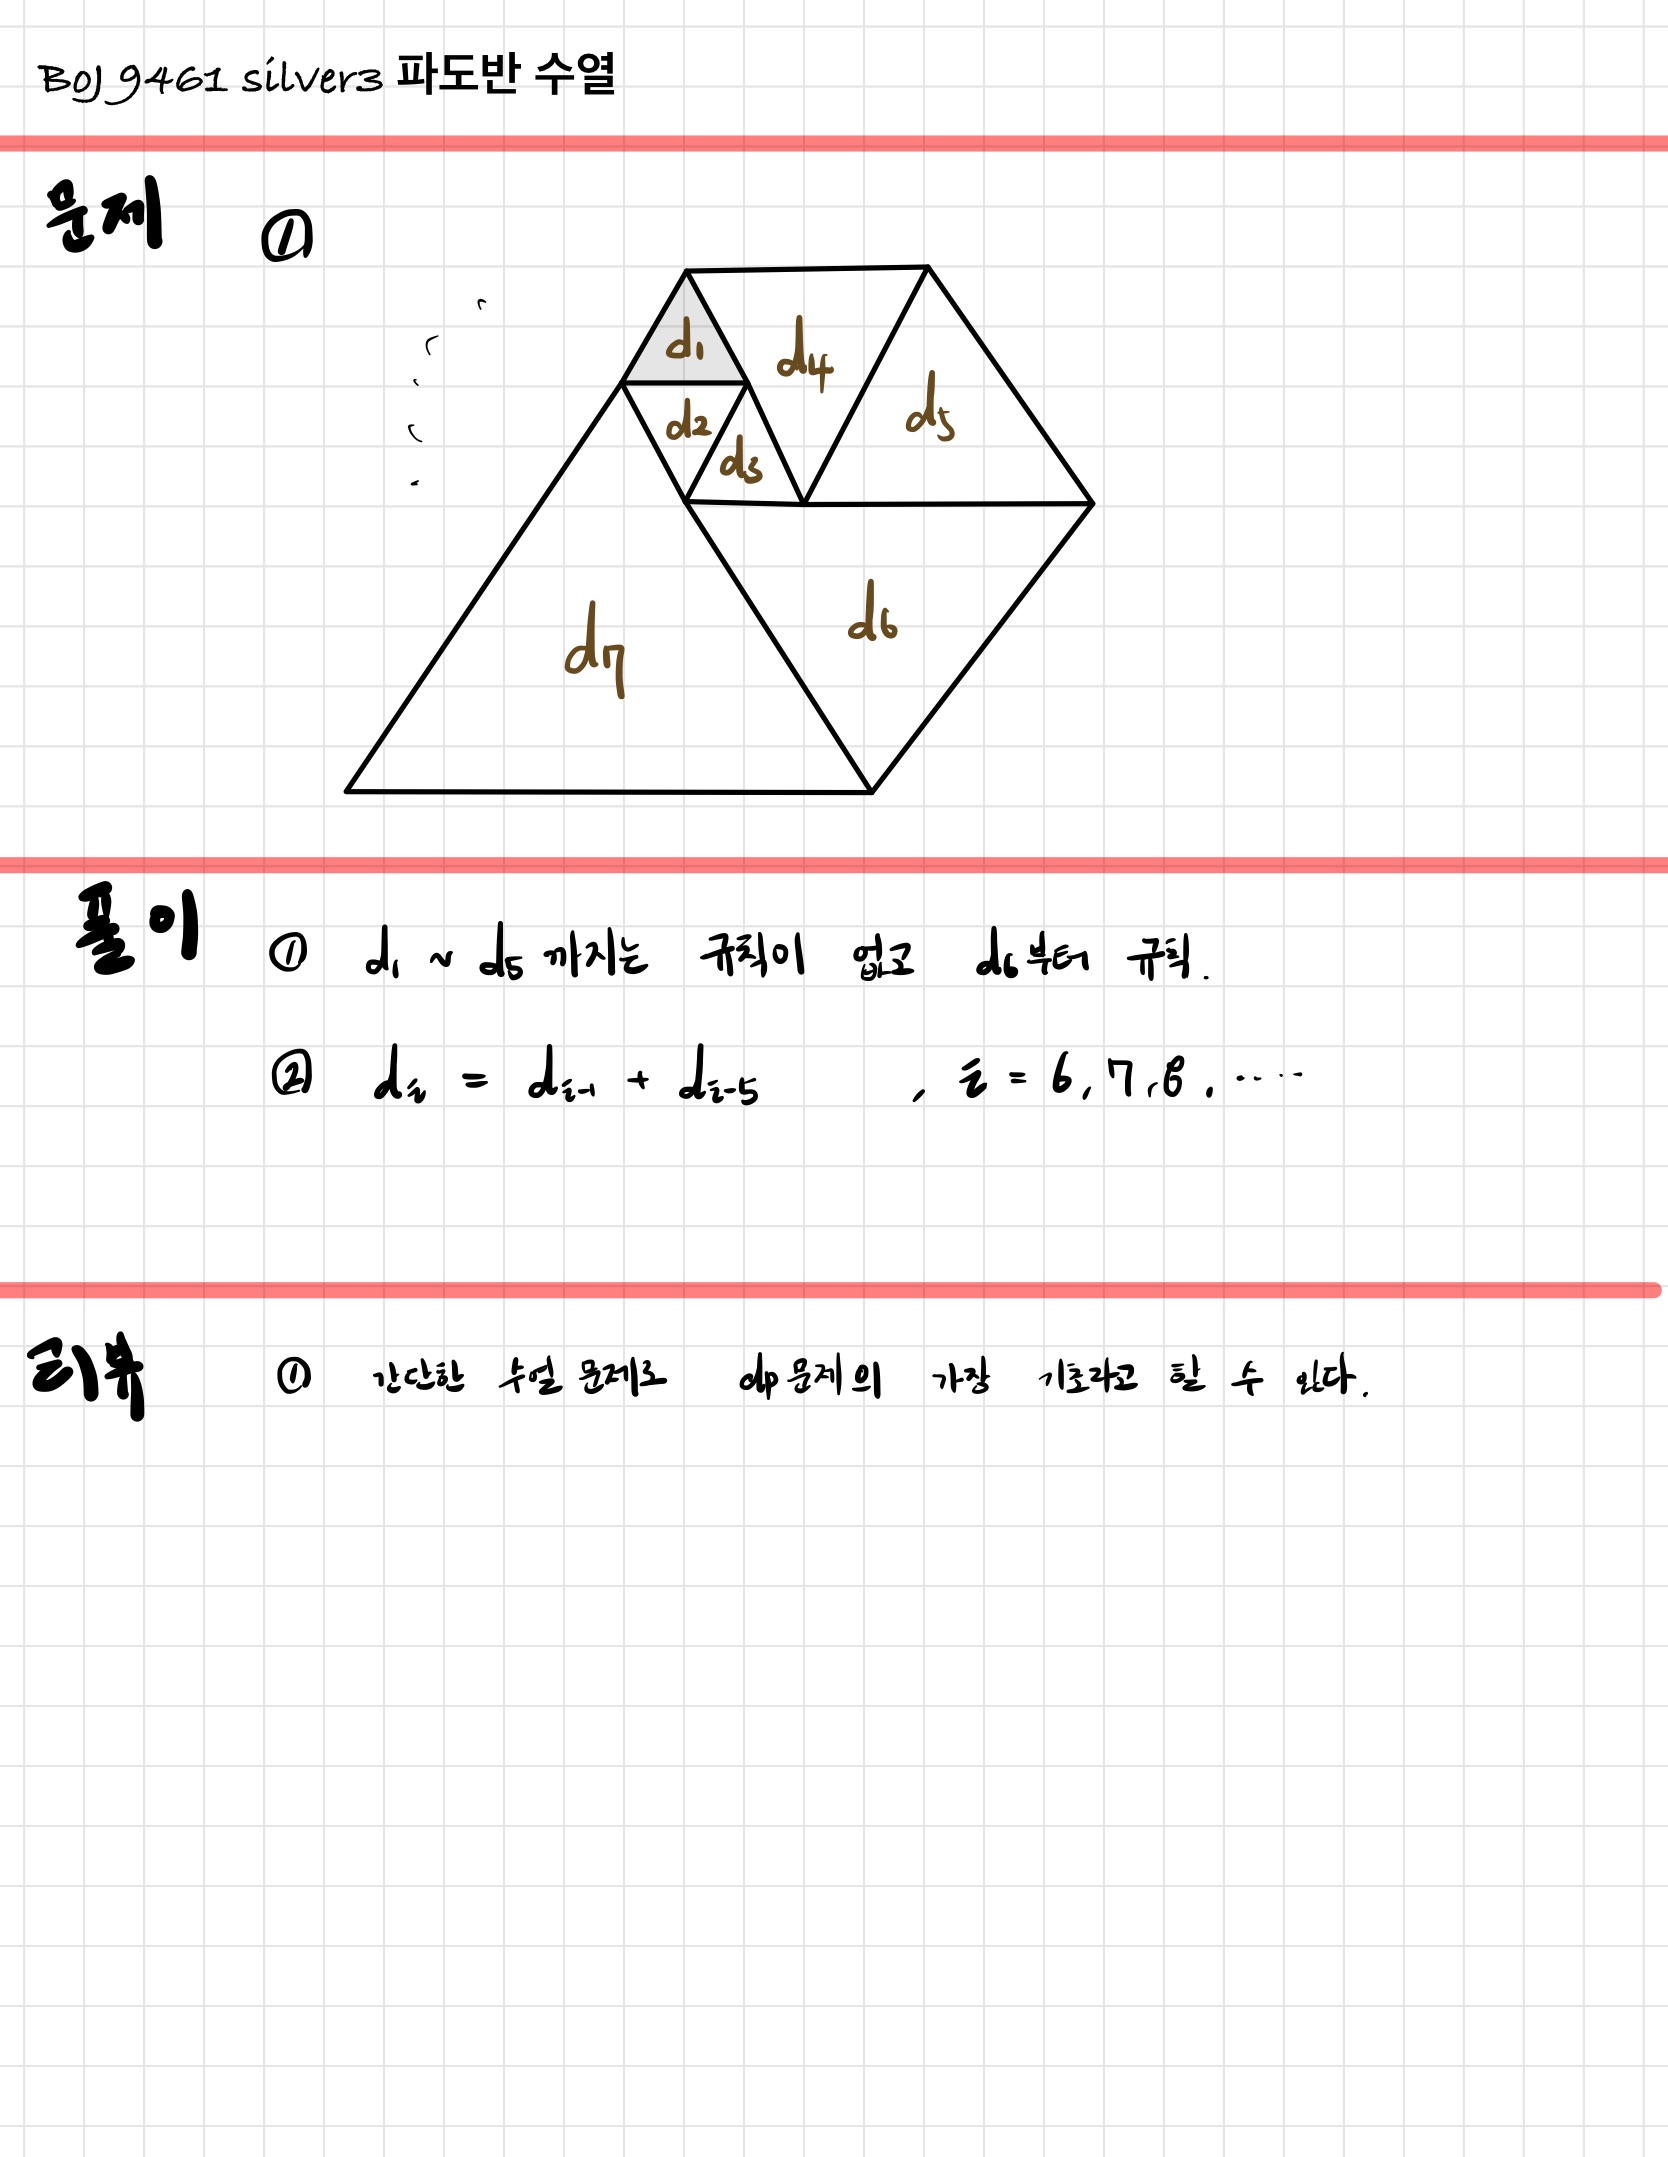 BOJ 9461 silver3 파도반 수열
문제 ①
d1
d4
d5
d2
d3
d6
d7
풀이 ① d1 ~ d5 까지는 규칙이 없고 d6부터 규칙.
② di = di-1 + di-5 , i = 6, 7, 8, ....
리뷰 ① 간단한 수열 문제로 dp 문제의 가장 기초라고 할 수 있다.